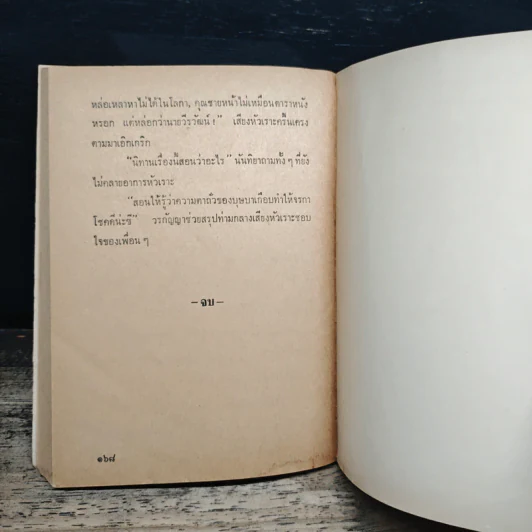 หล่อเหลาหาไม่ได้ในโลกา, คุณชายหน้าไม่เหมือนดาราหนัง
หรอก แต่หล่อกว่านายวีรวัฒน์ !" เสียงหัวเราะครื้นเครง
ตามมาเอิกเกริก
"นิทานเรื่องนี้สอนว่าอะไร" นันทิยาถามทั้ง ๆ ที่ยัง
ไม่คลายอาการหัวเราะ
"สอนให้รู้ว่าความตาถั่วของบุษบาเกือบทำให้จรกา
โชคดีน่ะซี" วรกัญญาช่วยสรุปท่ามกลางเสียงหัวเราะชอบ
ใจของเพื่อน ๆ
– จบ –
๑๖๘